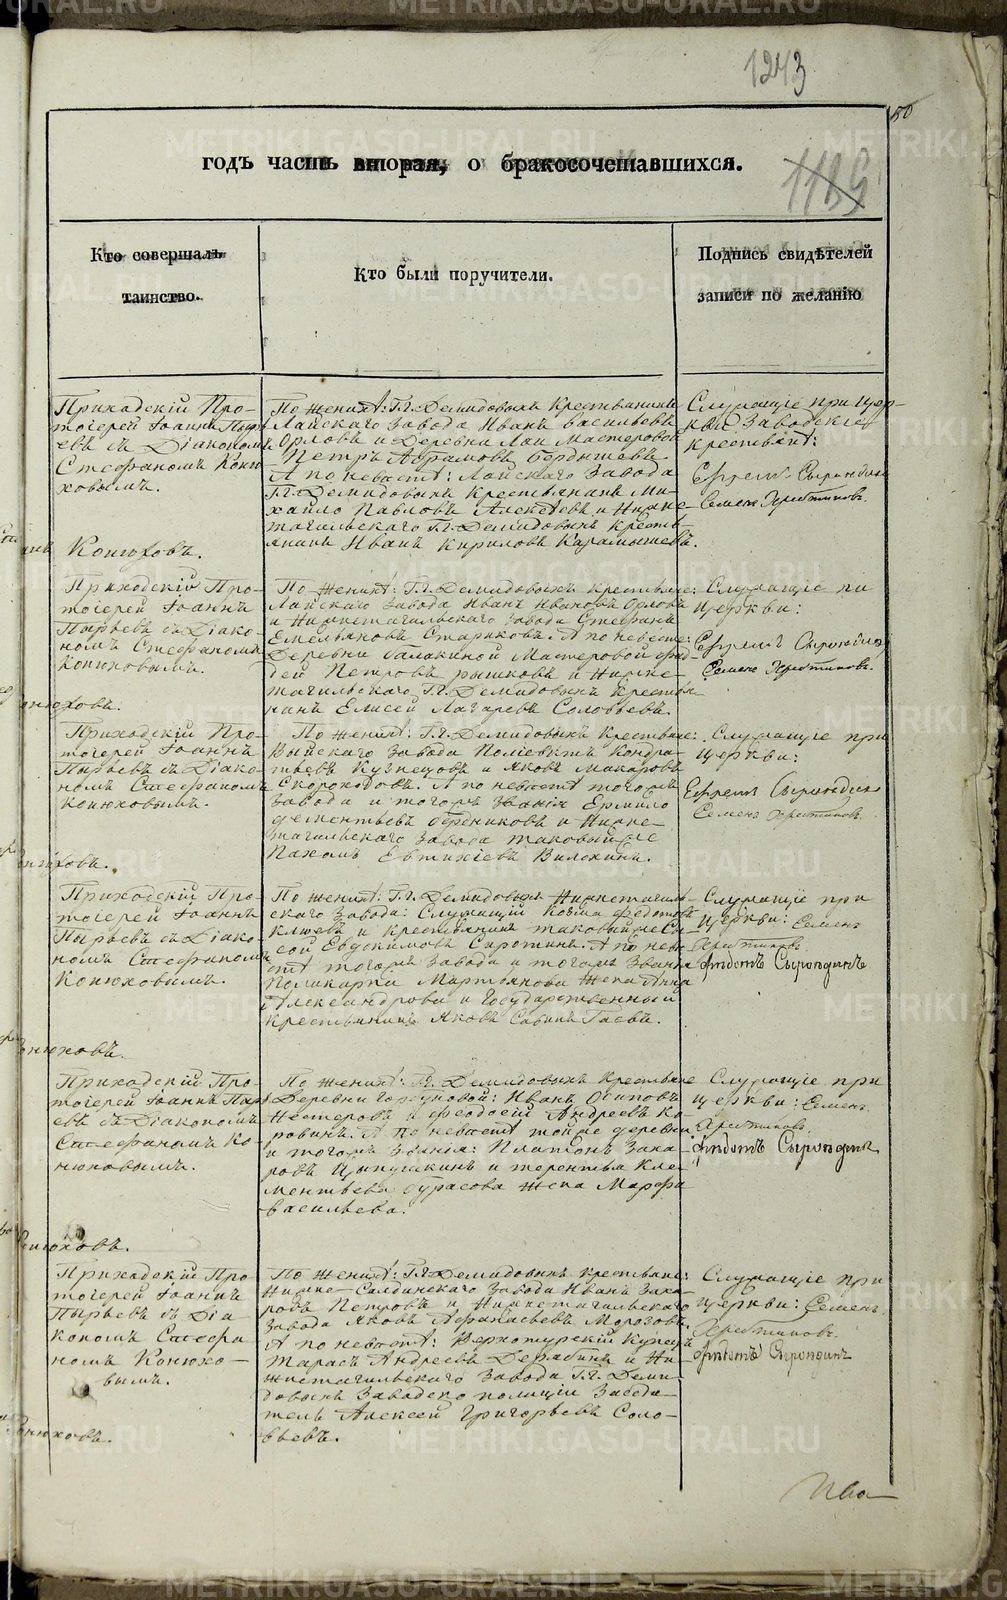 1243
50
годъ часть вторая, о бракосочетавшихся.
1185
Кто совершалъ
таинство.
Кто были поручители.
Подпись свидѣтелей
записи по желанію
Приходскій Про-
тоіерей Іоаннъ Пырь-
евъ съ Діакономъ
Стефаномъ Коню-
ховымъ.
Конюховъ.
По женихѣ: Г.г. Демидовыхъ крестьянинъ
Лайскаго завода Иванъ Васильевъ
Орловъ и Деревни Лаи Мастеровой
Петръ Абрамовъ Бердышевъ
А по невѣстѣ: Лайскаго завода
Г.г. Демидовыхъ крестьянинъ Ми-
хайло Павловъ Алексѣевъ и Нижне-
тагильскаго Г.г. Демидовыхъ кресть-
янинъ Иванъ Кириловъ Карамышевъ.
Служащіе при Цер-
кви Заводскіе
крестьяне:
Ефремъ Сыропдинъ
Семенъ Хрестниковъ.
Приходскій Про-
тоіерей Іоаннъ
Пырьевъ съ Діако-
номъ Стефаномъ
Конюховымъ.
нюховъ.
По женихѣ: Г.г. Демидовыхъ крестьяне:
Лайскаго завода Иванъ Ивановъ Орловъ
и Нижнетагильскаго завода Стефанъ
Емельяновъ Стариковъ. А по невѣстѣ:
Деревни Балакиной Мастеровой Фад-
дей Петровъ Рышковъ и Нижне-
тагильскаго Г.г. Демидовыхъ кресть-
нинъ Елисей Лазаревъ Соловьевъ.
Служащіе при
Церкви:
Ефремъ Сыропдинъ
Семенъ Хрестниковъ.
Приходскій Про-
тоіерей Іоаннъ
Пырьевъ съ Діако-
номъ Стефаномъ
Конюховымъ.
нюховъ.
По женихѣ: Г.г. Демидовыхъ крестьяне:
Выйскаго завода Поліевктъ Кондра-
тьевъ Кузнецовъ и Яковъ Макаровъ
Скороходовъ. А по невѣстѣ тогожъ
завода и тогожъ званія Ермило
Дементьевъ Бердниковъ и Нижне-
тагильскаго завода таковый же
Пахомъ Евтихіевъ Вилохинъ.
Служащіе при
Церкви:
Ефремъ Сыропдинъ
Семенъ Хрестниковъ.
Приходскій Про-
тоіерей Іоаннъ
Пырьевъ съ Діако-
номъ Стефаномъ
Конюховымъ.
нюховъ.
По женихѣ: Г.г. Демидовыхъ Нижнетагиль-
скаго завода: Служащій Козма Федотовъ
Клюевъ и крестьянинъ таковый же Сы-
сой Евдокимовъ Сиротинъ. А по невѣ-
стѣ тогожъ завода и тогожъ званія
Поликарпа Мартьянова жена Анна
Александрова и Государственный
крестьянинъ Яковъ Савинъ Гаевъ.
Служащіе при
Церкви: Семенъ
Хрестниковъ.
Ѳедотъ Сыропдинъ
Приходскій Про-
тоіерей Іоаннъ Пырь-
евъ съ Діакономъ
Стефаномъ Ко-
нюховымъ.
нюховъ.
По женихѣ: Г.г. Демидовыхъ крестьяне
Деревни Горбуновой: Иванъ Осиповъ
Нестеровъ и Феодосій Андреевъ Ко-
ровинъ. А по невѣстѣ тойже деревни
и тогожъ званія: Платонъ Заха-
ровъ Цыпушкинъ и Терентья Кле-
ментьева Бурасова жена Марфа
Васильева.
Служащіе при
Церкви: Семенъ
Хрестниковъ.
Ѳедотъ Сыропдинъ
Приходскій Про-
тоіерей Іоаннъ
Пырьевъ съ Діа-
кономъ Стефа-
номъ Конюхо-
вымъ.
нюховъ.
По женихѣ: Г.г. Демидовыхъ крестьяне:
Нижне-Салдинскаго завода Иванъ Заха-
ровъ Петровъ и Нижнетагильскаго
завода Яковъ Афанасьевъ Морозовъ.
А по невѣстѣ: Верхотурскій Купецъ
Тарасъ Андреевъ Дерябинъ и Ни-
жнетагильскаго завода Г.г. Деми-
довыхъ Заводско полиціи Засѣда-
тель Алексей Григорьевъ Соло-
вьевъ.
Служащіе при
Церкви: Семенъ
Хрестниковъ.
Ѳедотъ Сыропдинъ
METRIKI.GASO-URAL.RU